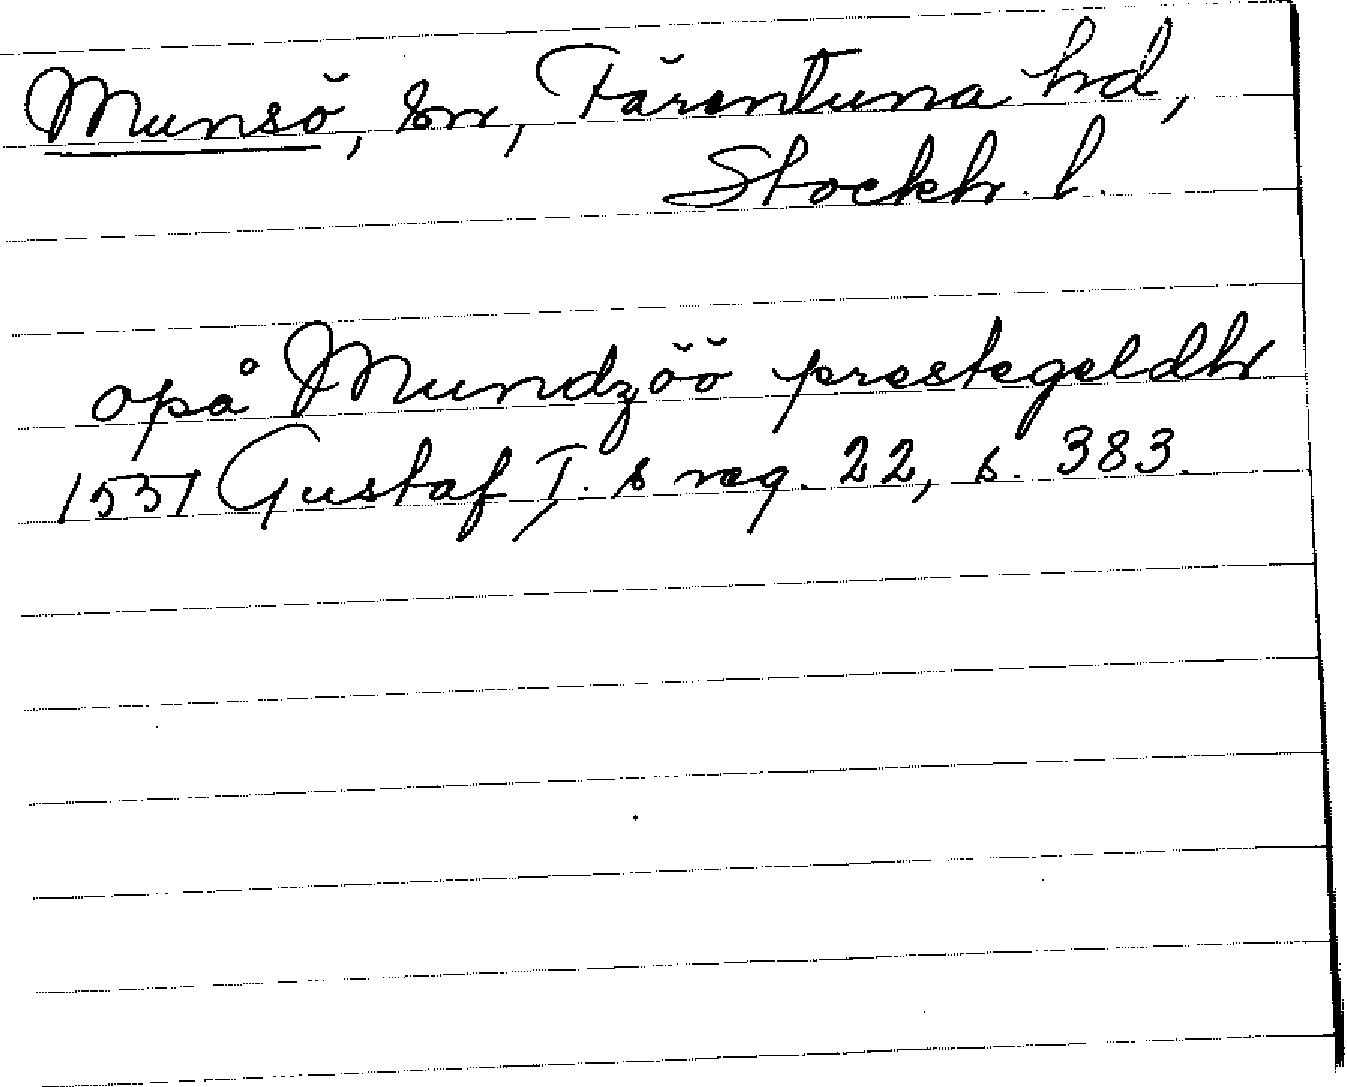 Munsö, sn, Färentuna hd,
Stockh. l.
opå Mundzöö prestegeldhr
1551 Gustaf I. s reg. 22, s. 383.